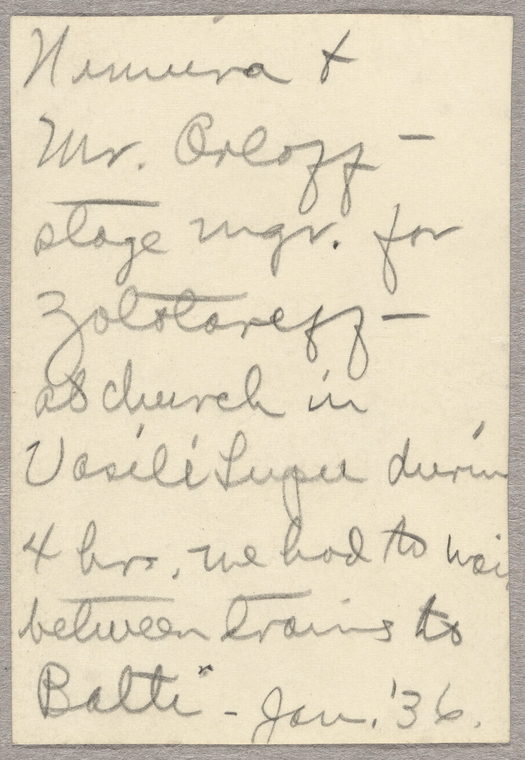 Nimura &
Mr. Orloff -
stage mgr. for
Zolotareff -
at church in
Vasili Lupu durin
4 hrs. we had to wai
between trains to
Balti - Jan. '36.